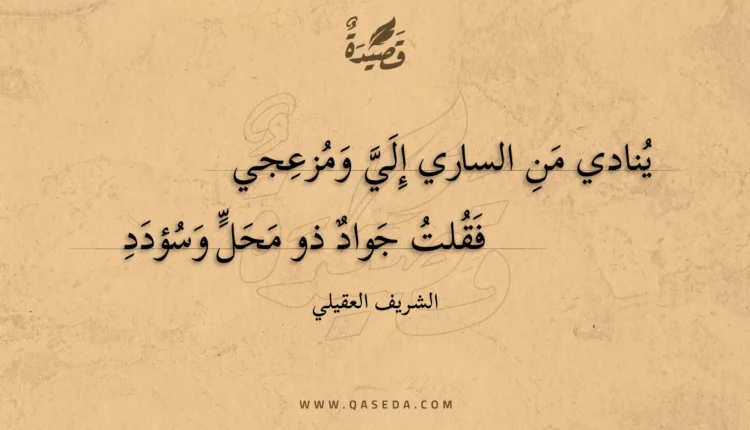 قَصِيدَةٌ
يُنادي مَنِ الساري إِلَيَّ وَمُزعِجي
فَقُلتُ جَوادٌ ذو مَحَلٍّ وَسُؤدَدِ
الشريف العقيلي
WWW.QASEDA.COM